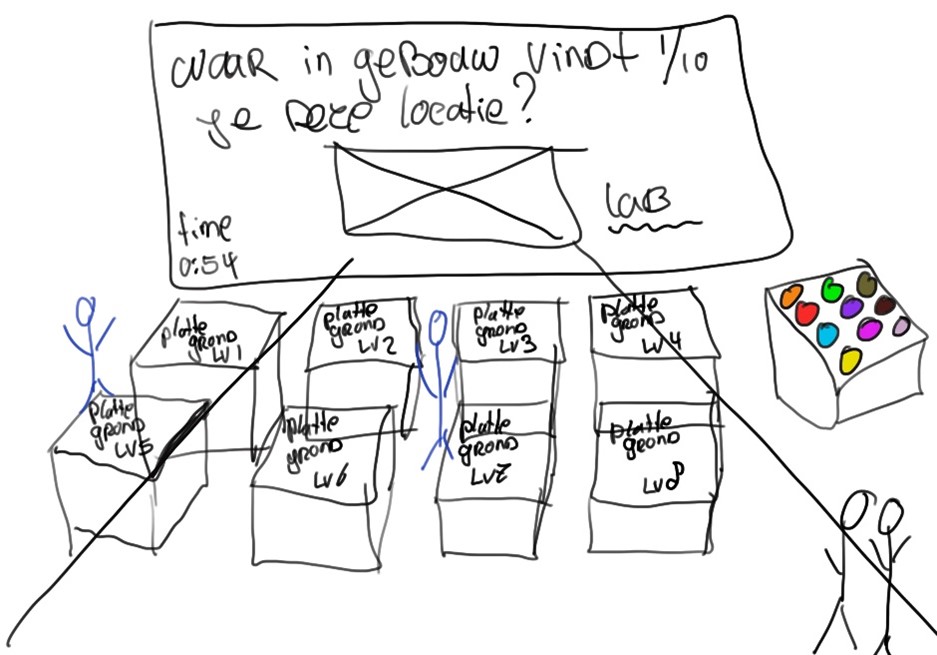 waar in gebouw vindt 1/10
je deze locatie?
lab
time
0:54
platte
grond
Lv1
platte
grond
Lv2
platte
grond
Lv3
platte
grond
Lv4
platte
grond
Lv5
platte
grond
Lv6
platte
grond
Lv7
platte
grond
Lv8